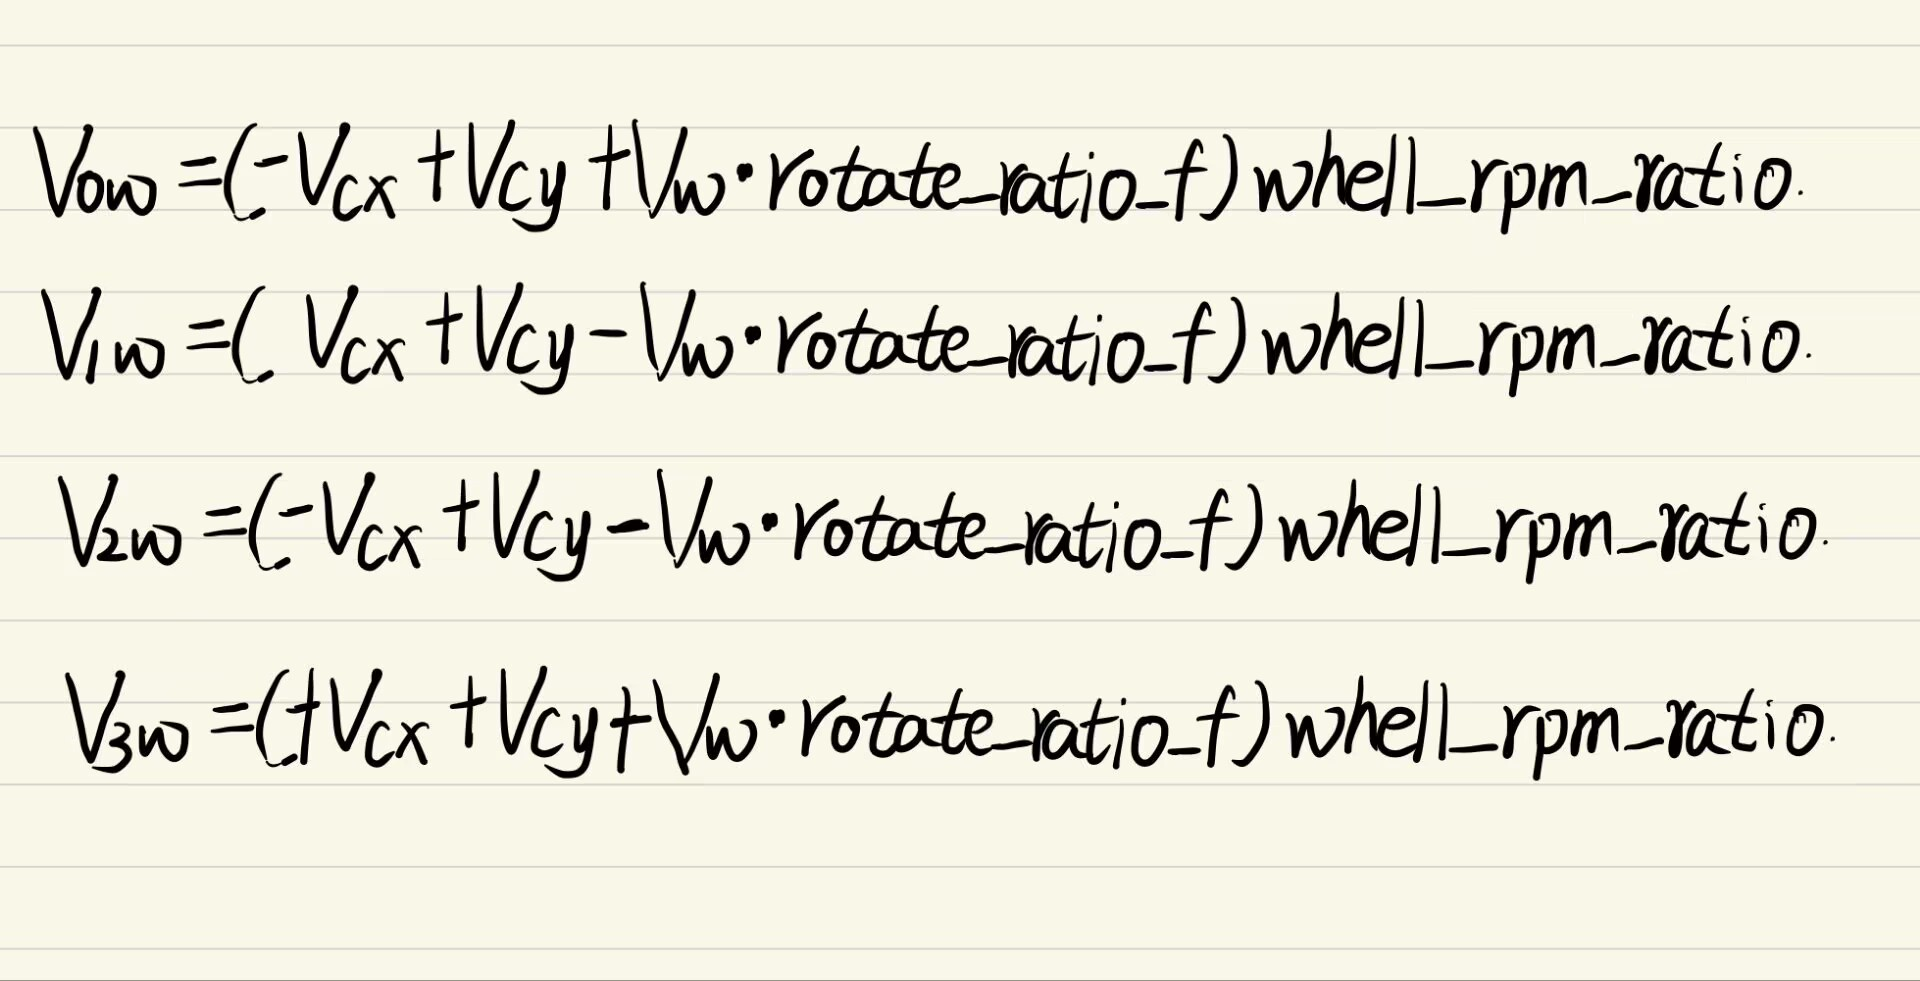 V0w =(-Vcx +Vcy +Vw·rotate_ratio_f) whell_rpm_ratio.
V1w =( Vcx +Vcy -Vw·rotate_ratio_f) whell_rpm_ratio.
V2w =(-Vcx +Vcy -Vw·rotate_ratio_f) whell_rpm_ratio.
V3w =(+Vcx +Vcy +Vw·rotate_ratio_f) whell_rpm_ratio.